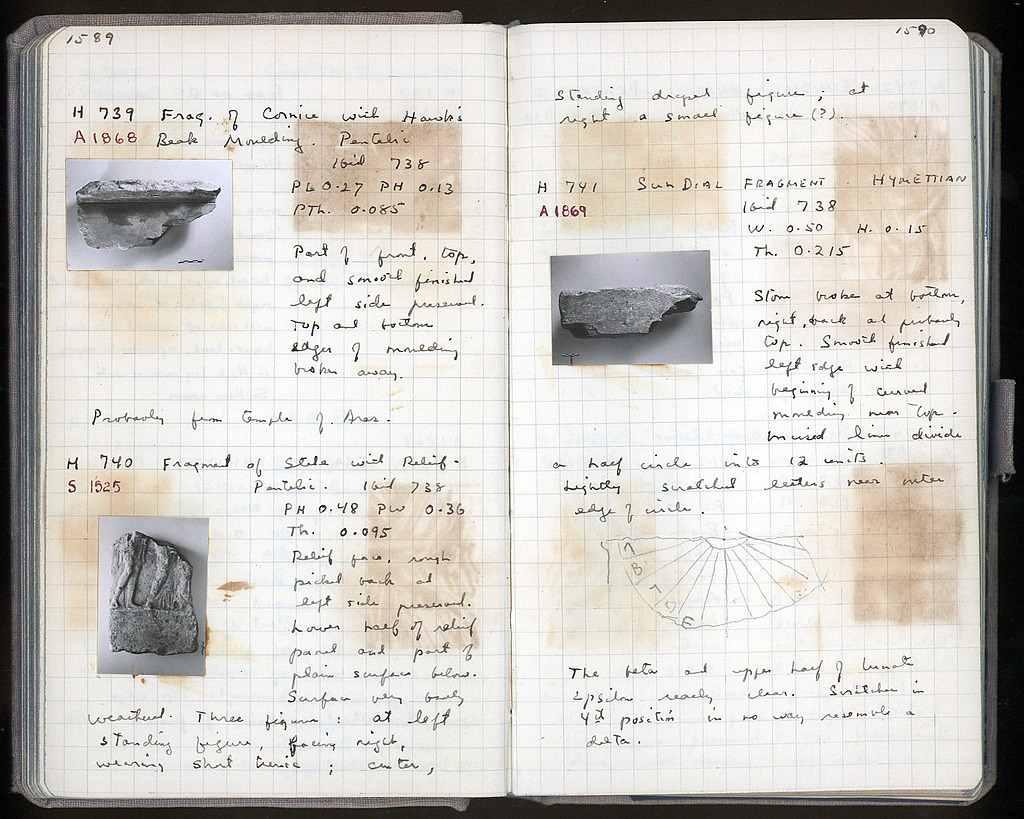 1589
H 739 Frag. of Cornice with Hawk's
A 1868 Beak Moulding. Pentelic
Ibid 738
PL 0.27 PH 0.13
PTh. 0.085
Part of front, top,
and smooth finished
left side preserved.
Top and bottom
edges of moulding
broken away.
Probably from temple of Ares.
H 740 Fragment of Stele with Relief.
S 1525 Pentelic. Ibid 738
PH 0.48 PW 0.36
Th. 0.095
Relief face, rough
picked back and
left side preserved.
Lower half of relief
panel and part of
plain surface below.
Surface very badly
weathered. Three figures: at left
standing figure, facing right,
wearing short tunic; center,
1590
standing draped figure; at
right a small figure (?).
H 741 SUNDIAL FRAGMENT. HYMETTIAN
A 1869 Ibid 738
W. 0.50 H. 0.15
Th. 0.215
Stone broken at bottom,
right, back and probably
top. Smooth finished
left edge with
beginning of curved
moulding near top.
Incised lines divide
a half circle into 12 units.
Lightly scratched letters near outer
edge of circle.
B
E
The beta and upper half of lunate
epsilon really clear. Scratches in
4th position in no way resemble a
delta.